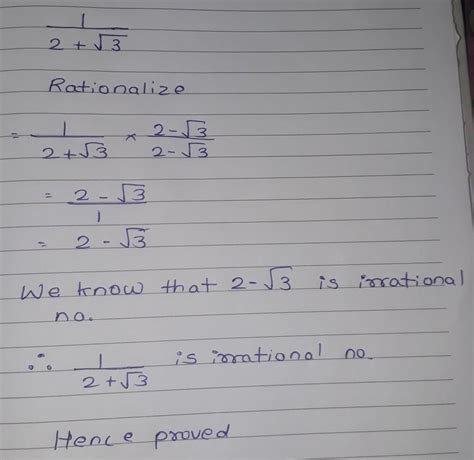 1/(2 + √3)
Rationalize
= 1/(2+√3) × (2-√3)/(2-√3)
= (2 - √3)/1
= 2 - √3
We know that 2-√3 is irrational
no.
∴ 1/(2+√3) is irrational no.
Hence proved